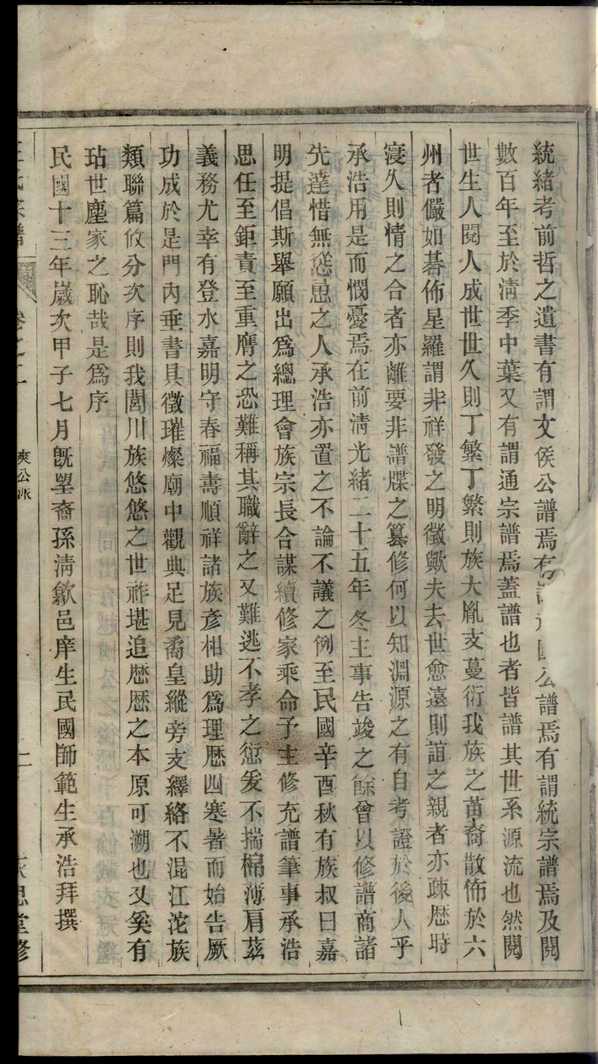 統緒考前哲之遺書有謂文侯公譜焉有公譜焉有謂統宗譜焉及閱
數百年至於淸季中葉又有謂通宗譜焉蓋譜也者皆譜其世系源流也然閱
世生人閱人成世世久則丁繁丁繁則族大胤支蔓衍我族之苗裔散佈於六
州者儼如碁佈星羅謂非祥發之明徵歟夫去世愈遠則誼之親者亦疎歷時
寖久則情之合者亦離要非譜牒之纂修何以知淵源之有自考證於後人乎
承浩用是而憫憂焉在前淸光緒二十五年冬主事告竣之餘曾以修譜商諸
先達惜無慫恿之人承浩亦置之不論不議之例至民國辛酉秋有族叔曰嘉
明提倡斯舉願出爲總理會族宗長合謀續修家乘命予主修充譜筆事承浩
思任至鉅責至重膺之恐難稱其職辭之又難逃不孝之愆爰不揣棉薄肩茲
義務尤幸有登水嘉明守春福壽順祥諸族彥相助爲理歷四寒暑而始告厥
功成於是門內垂書具徵璀燦廟中觀典足見喬皇縱旁支繹絡不混江沱族
類聯篇攸分次序則我閭川族悠悠之世祚堪追歷歷之本原可溯也又奚有
玷世塵家之恥哉是爲序
民國十三年歲次甲子七月旣望裔孫淸歙邑庠生民國師範生承浩拜撰
氏宗譜
卷之二
爽公派
二
思堂修